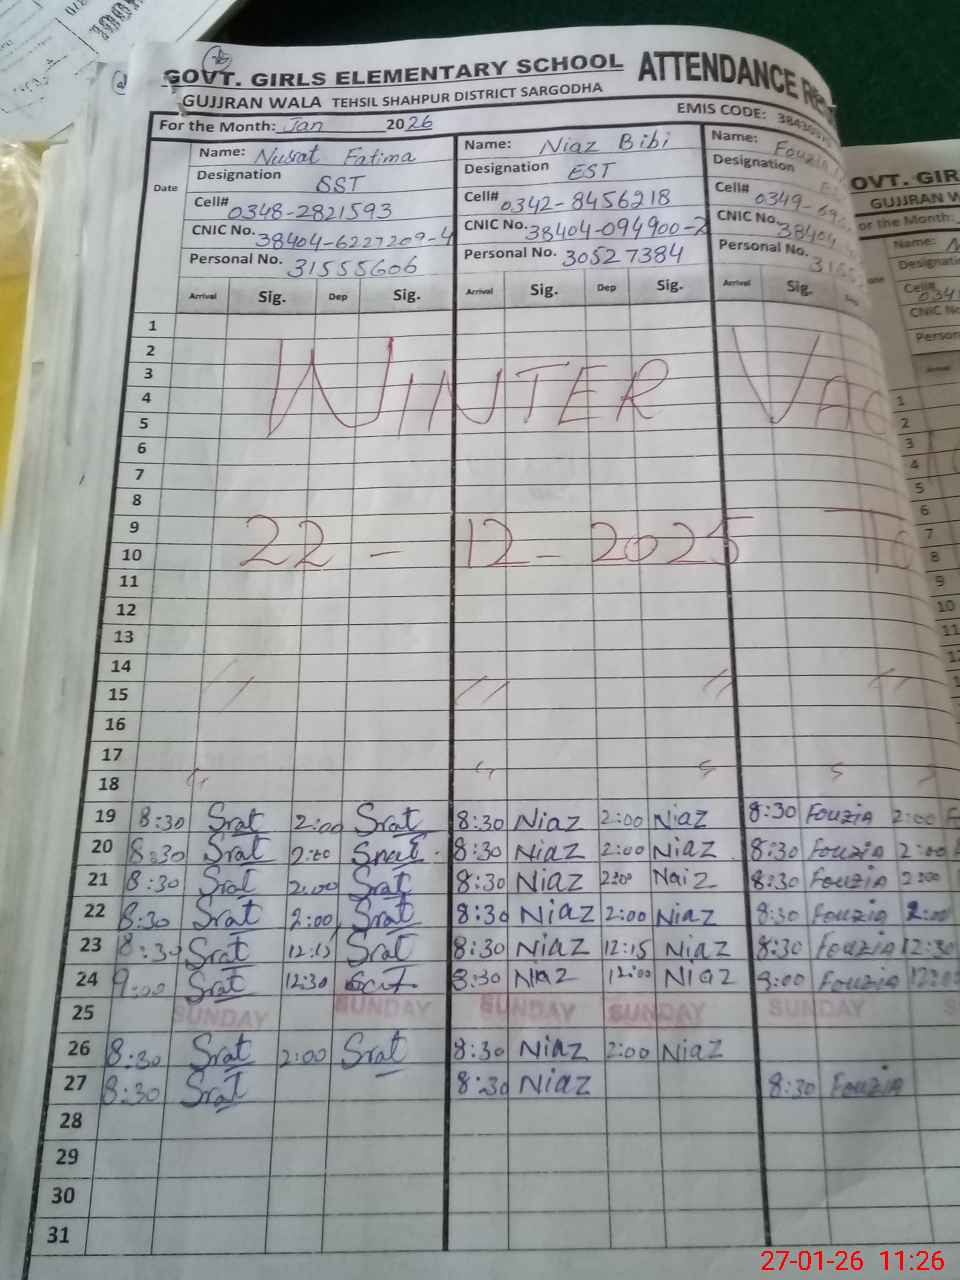 GOVT. GIRLS ELEMENTARY SCHOOL ATTENDANCE
GUJJRAN WALA TEHSIL SHAHPUR DISTRICT SARGODHA
EMIS CODE:
For the Month: Jan 2026
Date
Name: Nusrat Fatima Name: Niaz Bibi Name: Fouzia
Designation SST Designation EST Designation
Cell# 0348-2821593 Cell# 0342-8456218 Cell# 0349-
CNIC No. 38404-6227209-4 CNIC No. 38404-094900-2 CNIC No. 38404
Personal No. 31555606 Personal No. 30527384 Personal No.
Arrival Sig. Dep Sig. Arrival Sig. Dep Sig. Arrival Sig. Dep
1
2
3
4
5
WINTER VAC
6
7
8
9
10
22 - 12 - 2025 To
11
12
13
14
15
16
17
18
19 8:30 Srat 2:00 Srat 8:30 Niaz 2:00 Niaz 8:30 Fouzia 2:00
20 8:30 Srat 2:00 Srat 8:30 Niaz 2:00 Niaz 8:30 Fouzia 2:00
21 8:30 Srat 2:00 Srat 8:30 Niaz 2:00 Naiz 8:30 Fouzia 2:00
22 8:30 Srat 2:00 Srat 8:30 Niaz 2:00 Niaz 8:30 Fouzia 2:00
23 8:30 Srat 12:15 Srat 8:30 Niaz 12:15 Niaz 8:30 Fouzia 12:30
24 9:00 Srat 12:30 8:30 Niaz 12:00 Niaz Fouzia 12:00
25 SUNDAY SUNDAY SUNDAY SUNDAY SUNDAY
26 8:30 Srat 2:00 Srat 8:30 Niaz 2:00 Niaz
27 8:30 Srat 8:30 Niaz 8:30 Fouzia
28
29
30
31
OVT. GIR
GUJJRAN W
or the Month:
Name:
Cell#
CNIC No
Person
1
2
3
4
5
6
7
8
9
10
11
27-01-26 11:26